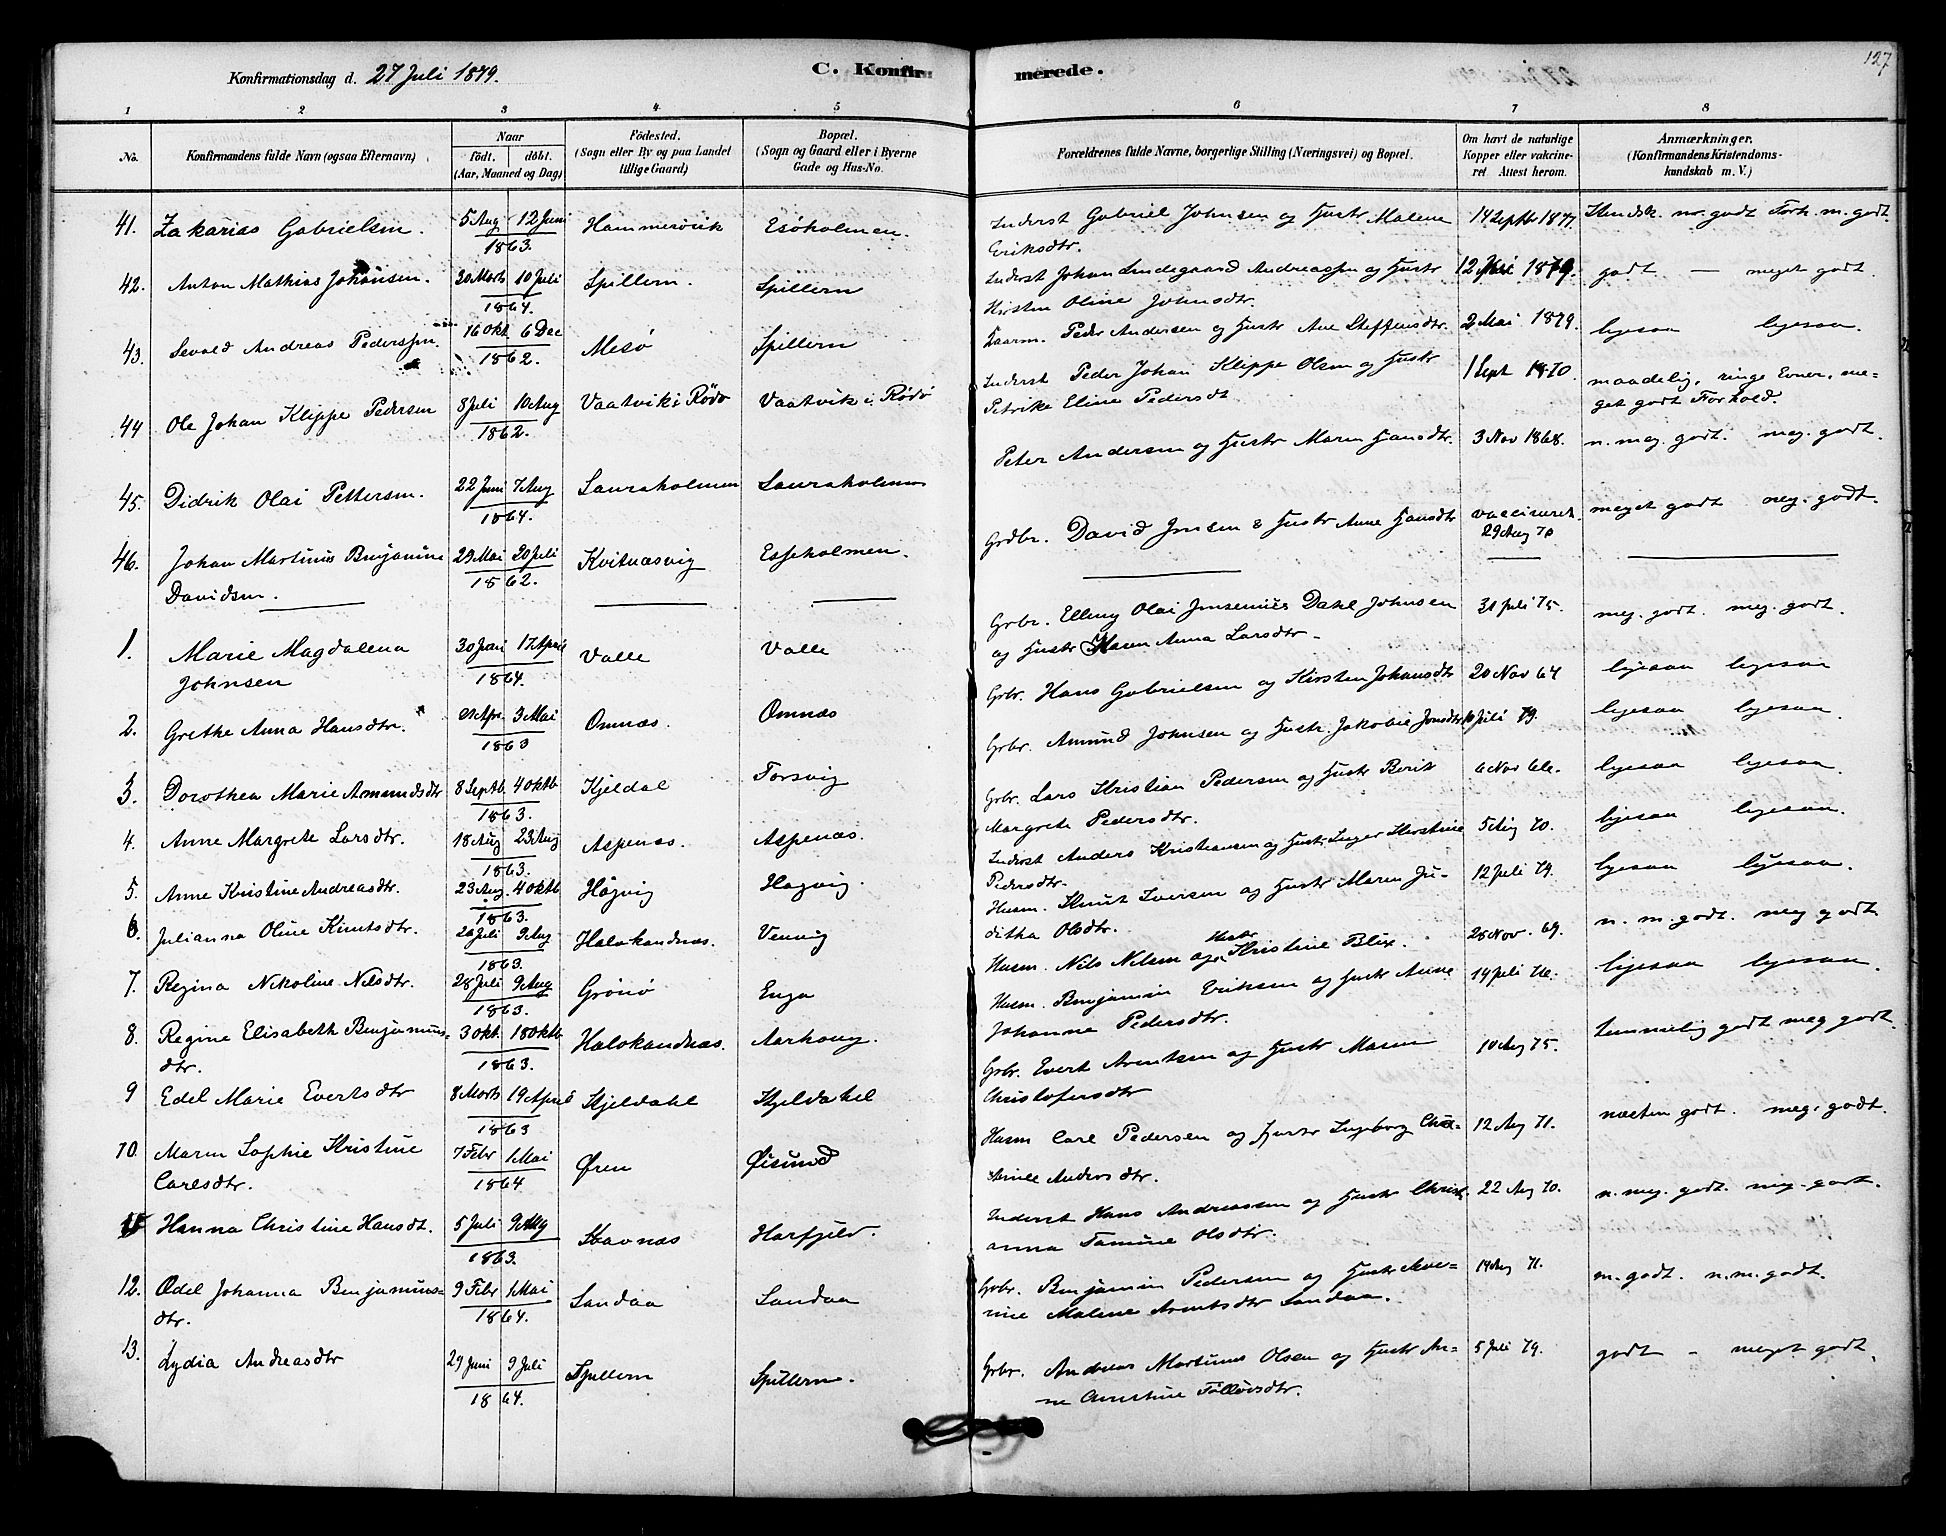 Konfirmationsdag d. 27 Juli 1879.
C. Konfirmerede.
127
1 2 3 4 5 6 7 8
No.
Konfirmandens fulde Navn (ogsaa Efternavn)
Naar
født. døbt.
(Aar, Maaned og Dag)
Fødested.
(Sogn eller By og paa Landet
tillige Gaard)
Bopæl.
(Sogn og Gaard eller i Byerne
Gade og Hus-No.
Forældrenes fulde Navne, borgerlige Stilling (Næringsvei) og Bopæl.
Om havt de naturlige
Kopper eller vakcine-
ret Attest herom.
Anmærkninger.
(Konfirmandens Kristendoms-
kundskab m. V.)
41. Zakarias Gabrielsen. 5 Aug 12 Juni 1863. Esøholmen. Inderst Gabriel Johnsen og Hustr Malene 14 Septbr 1877 Kundsk. nr. godt Forh. m. godt.
Eriksdtr.
42. Anton Mathias Johansen. 30 Marts 10 Juli 1864. Spillern. Spillern Inderst Johan Lindegaard Andreassen og Hustr 1879. godt — meget godt.
Kirsten Oline Johnsdtr.
43. Sevald Andreas Pederssen. 16 Okt. 6 Dec 1862. Mesø Spillern Peder Andersen og Hustr Ane Steffensdtr. 2 Mai 1879. ligesaa ligesaa.
44 Ole Johan Klippe Pedersen 8 Juli 10 Aug 1862. Vaatvik i Rödö Vaatvik i Rödö Inderst Peder Johan Klippe Olsen og Hustr 1 Sept 1870. maadelig, ringe Evner, me-
Petrike Eline Pedersdt get godt Forhold.
45. Didrik Olai Pettersen. 22 Juni 7 Aug 1864. Lauraholmen Lauraholmen Peter Andersen og Hustr Maren Hansdtr. 3 Nov 1868. n. meg. godt. meg. godt.
46. Johan Martinus Benjamin 29 Mai 20 Juli 1862. Kvitnæsvig Espholmen. Grdbr. David Jensen & Hustr Anne Hansdtr vaccineret 29 Aug 70 meget godt meg. godt.
Davidsen.
1. Marie Magdalena 30 Jan 17 April 1864. Valle Valle Grbr. Elling Olai Dahl Johnsen 31 Juli 75. meg. godt. meg. godt.
Johnsen og Hustr Karen Anna Larsdtr.
2. Grethe Anna Hansdtr. 3 Mai 1863 Omnæs. Omnæs Grbr. Hans Gabrielsen og Kirsten Johansdtr 20 Nov 64 ligesaa ligesaa
3. Dorothea Marie Amundsdtr 8 Septb. 4 Oktb 1863. Kjeldal Forsvig Grbr. Amund Johnsen og Hustr. Jakobie Jonsdtr Juli 79. ligesaa ligesaa.
4. Anne Margrete Larsdtr. 18 Aug 23 Aug 1863. Aspenæs. Aspenæs. Grbr. Lars Kristian Pedersen og Hustr Berit ligesaa ligesaa.
Margrete Pedersdtr.
5. Anne Kristine Andreasdtr. 23 Aug 4 Oktb 1863. Høgvig Høgvig. Inderst Anders Kristiansen og Hustr Inger Kirstine 5 Aug 70. ligesaa ligesaa.
Pedersdtr.
6. Julianna Oline Knutsdtr. 9 Aug 1863. Halokandnæs. Venvig Husm. Knut Iversen og Hustr Maren Ju- 12 Juli 79. ligesaa ligesaa.
ditha Olsdtr.
7. Regina Nikoline Nilsdtr. 28 Juli 9 Aug 1863. Grönö Enga Husm. Nils Nilsen og Hustr Kristine Blix. 28 Nov. 69. n. m. godt. meg godt
8. Regine Elisabeth Benjamins- 3 Okt. 18 Oktb 1863. Halokandnæs. Husm. Benjamin Eriksen og Hustr Anne 14 Juli ligesaa ligesaa.
dtr. Johanna Pedersdtr.
9 Edel Marie Evertsdtr 8 Marts 19 April 1863 Kjeldahl Kjeldahl Grbr. Evert Arentsen og Hustr Maren 10 Aug 75. temmelig godt meg godt.
Christofersdtr
10. Maren Sophie Kristine 7 Febr 1 Mai 1864 Øren Øisund Husm Carl Pedersen og Hustr Ingeborg 12 Aug 71. næsten godt. meg. godt.
Carlsdtr. Andersdtr.
Hanna Christine Hansdt. 5 Juli 9 Aug 1863. Stavnæs Harfjeld. Inderst Hans Andreassen og Hustr Christi- 22 Aug 70. n. meg. godt. meg. godt.
anna Tamine Olsdtr.
12. Odel Johanna Benjamins- 9 Febr 1 Mai 1864. Sandaa Sandaa Grbr. Benjamin Pedersen og Hustr 14 Aug 71. m. godt. n. m. godt.
dtr. Malene Arntsdtr Sandaa.
13. Lydia Andreasdtr 29 Juni 9 Juli 1864. Spillern Spillern. Grbr. Andreas Martinus Olsen og Hustr An- 5 Juli 79. godt — meget godt.
ne Christine